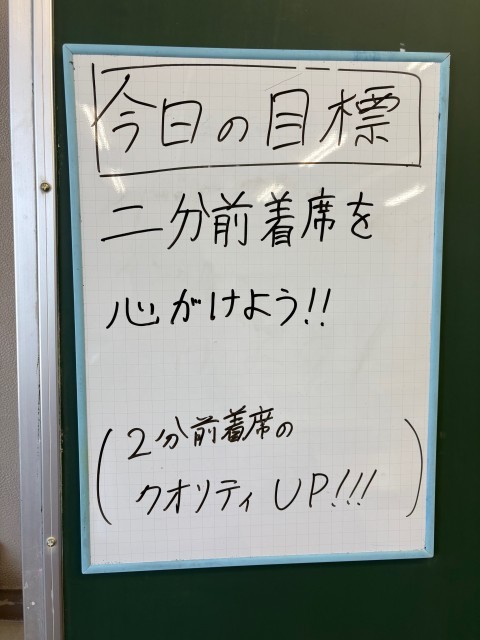 今日の目標
二分前着席を
心がけよう!!
(2分前着席の
クオリティUP!!!)